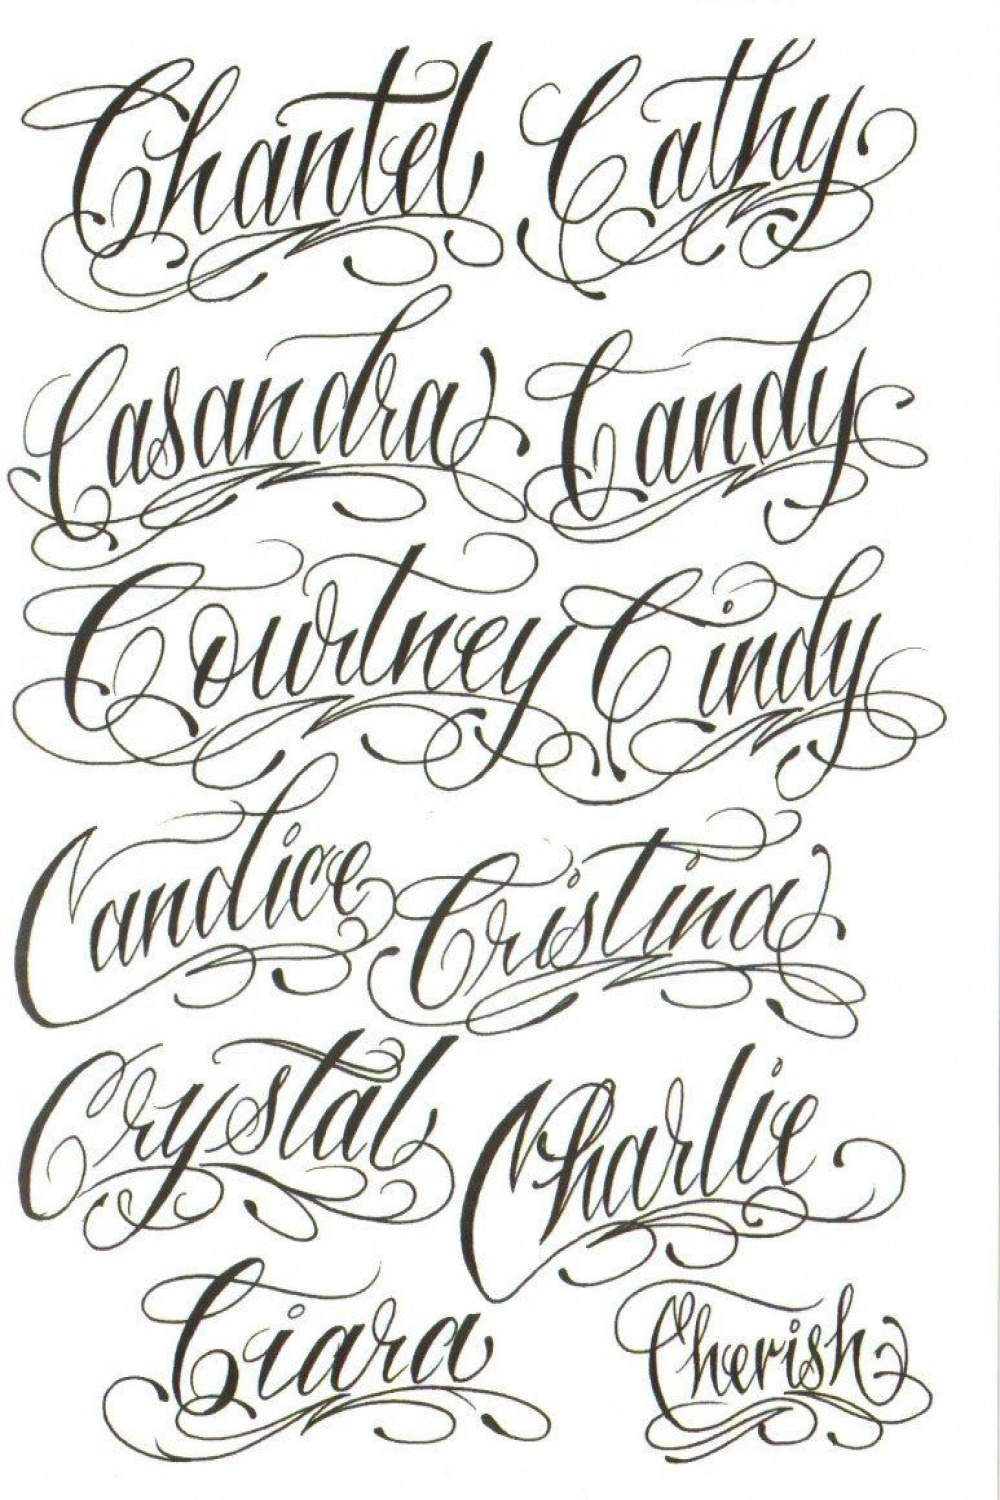 Chantel Cathy
Casandra Candy
Courtney Cindy
Candice Cristina
Crystal Charlie
Ciara Cherish